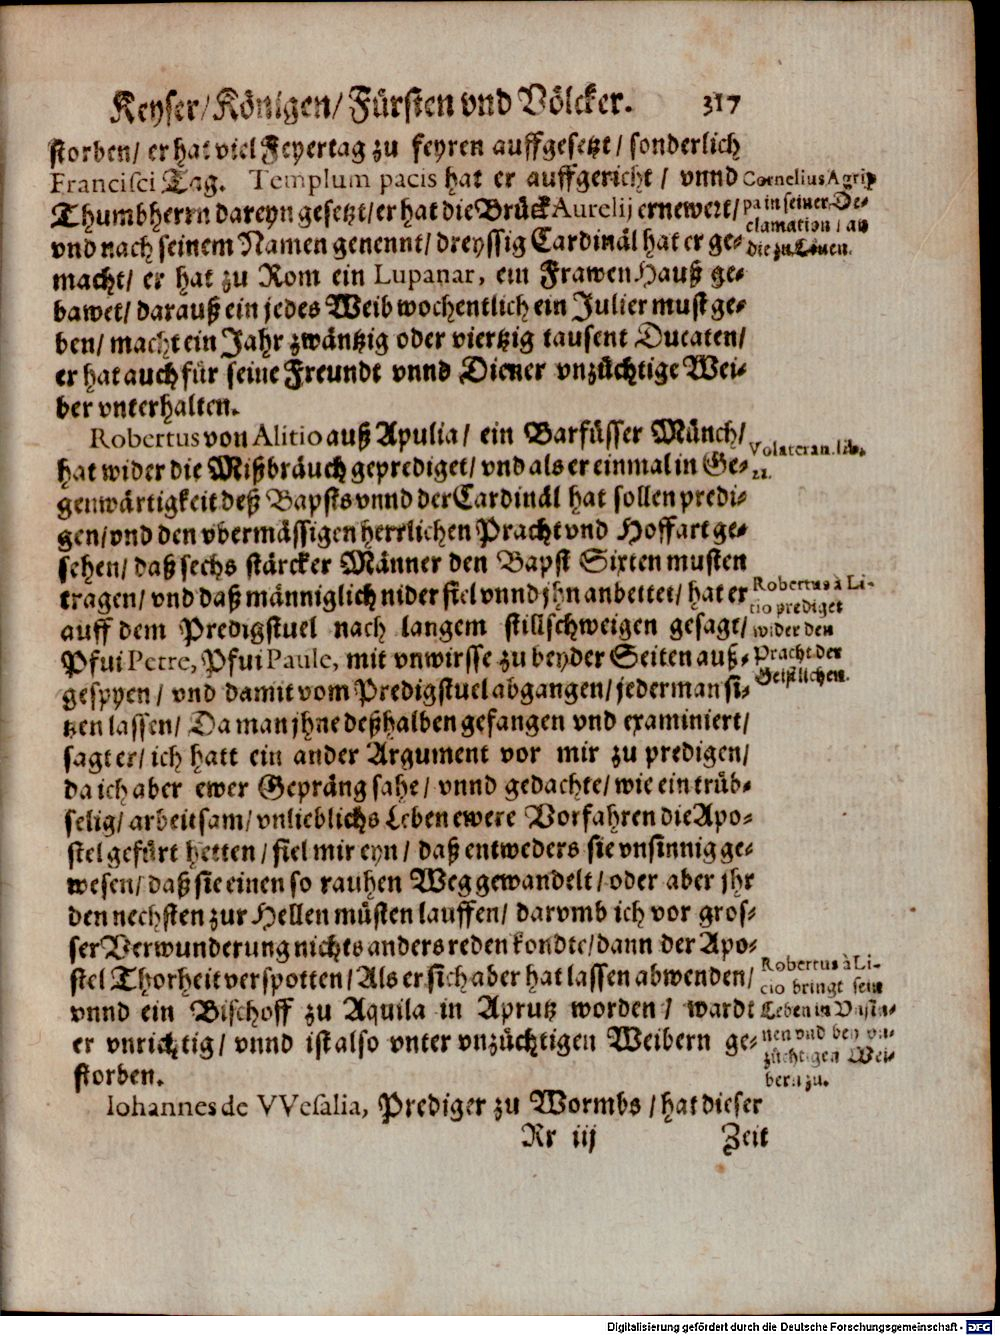 Keyser/Königen/Fürsten vnd Völcker. 317
storben/ er hat viel Feyertag zu feyren auffgesetzt/ sonderlich
Francisci Tag. Templum pacis hat er auffgericht / vnnd
Thumbherrn dareyn gesetzt/er hat die Brück Aurelij ernewert/
vnd nach seinem Namen genennt/ dreyssig Cardinäl hat er ge-
macht/ er hat zu Rom ein Lupanar, ein Frawen Hauß ge-
bawet/ darauß ein jedes Weib wochentlich ein Julier must ge-
ben/ macht ein Jahr zwäntzig oder viertzig tausent Ducaten/
er hat auch für seine Freundt vnnd Diener vnzüchtige Wei-
ber vnterhalten.
Cornelius Agrip
pa in seiner De-
clamation / an
die zu Löuen.
Robertus von Alitio auß Apulia/ ein Barfüsser Münch/
hat wider die Mißbräuch geprediget/ vnd als er einmal in Ge-
genwärtigkeit deß Bapsts vnnd der Cardinäl hat sollen predi-
gen/vnd den vbermässigen herrlichen Pracht vnd Hoffart ge-
sehen/ daß sechs stärcker Männer den Bapst Sixten musten
tragen/ vnd daß männiglich nider fiel vnnd jhn anbettet/ hat er
auff dem Predigstuel nach langem stillschweigen gesagt/
Pfui Petre, Pfui Paule, mit vnwirsse zu beyder Seiten auß-
gespyen / vnd damit vom Predigstuel abgangen/ jederman si-
tzen lassen/ Da man jhne deßhalben gefangen vnd examiniert/
sagt er/ ich hatt ein ander Argument vor mir zu predigen/
da ich aber ewer Gepräng sahe/ vnnd gedachte/ wie ein trüb-
selig/ arbeitsam/ vnlieblichs Leben ewere Vorfahren die Apo-
stel gefürt hetten / fiel mir eyn/ daß entweders sie vnsinnig ge-
wesen/ daß sie einen so rauhen Weg gewandelt/ oder aber jhr
den nechsten zur Hellen müsten lauffen/ darvmb ich vor gros-
ser Verwunderung nichts anders reden kondte/dann der Apo-
stel Thorheit verspotten/ Als er sich aber hat lassen abwenden/
vnnd ein Bischoff zu Aquila in Aprutz worden/ wardt
er vnrichtig/ vnnd ist also vnter vnzüchtigen Weibern ge-
storben.
Volateran. lib.
22.
Robertus à Li-
cio prediget
wider den
Pracht der
Geistlichen.
Robertus à Li-
cio bringt sein
Leben in
nen vnd bey vn-
züchtigen Wei-
bern zu.
Iohannes de VVesalia, Prediger zu Wormbs / hat dieser
Rr iij Zeit
Digitalisierung gefördert durch die Deutsche Forschungsgemeinschaft - DFG